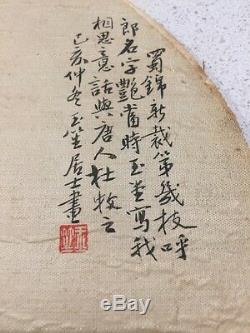 蜀錦新裁第幾枝呼
郎名字艷當時玉堂寫我
相思意話與唐人杜牧之
己亥仲冬玉笙居士畫